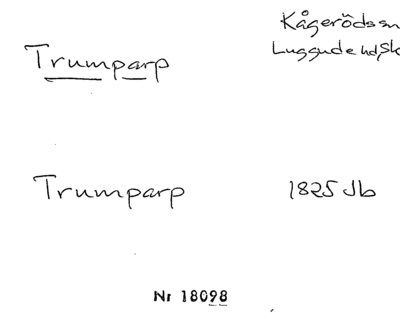 Kågeröds sn
Trumparp
Luggude hd Sk
Trumparp
1825 Jb
Nr 18098